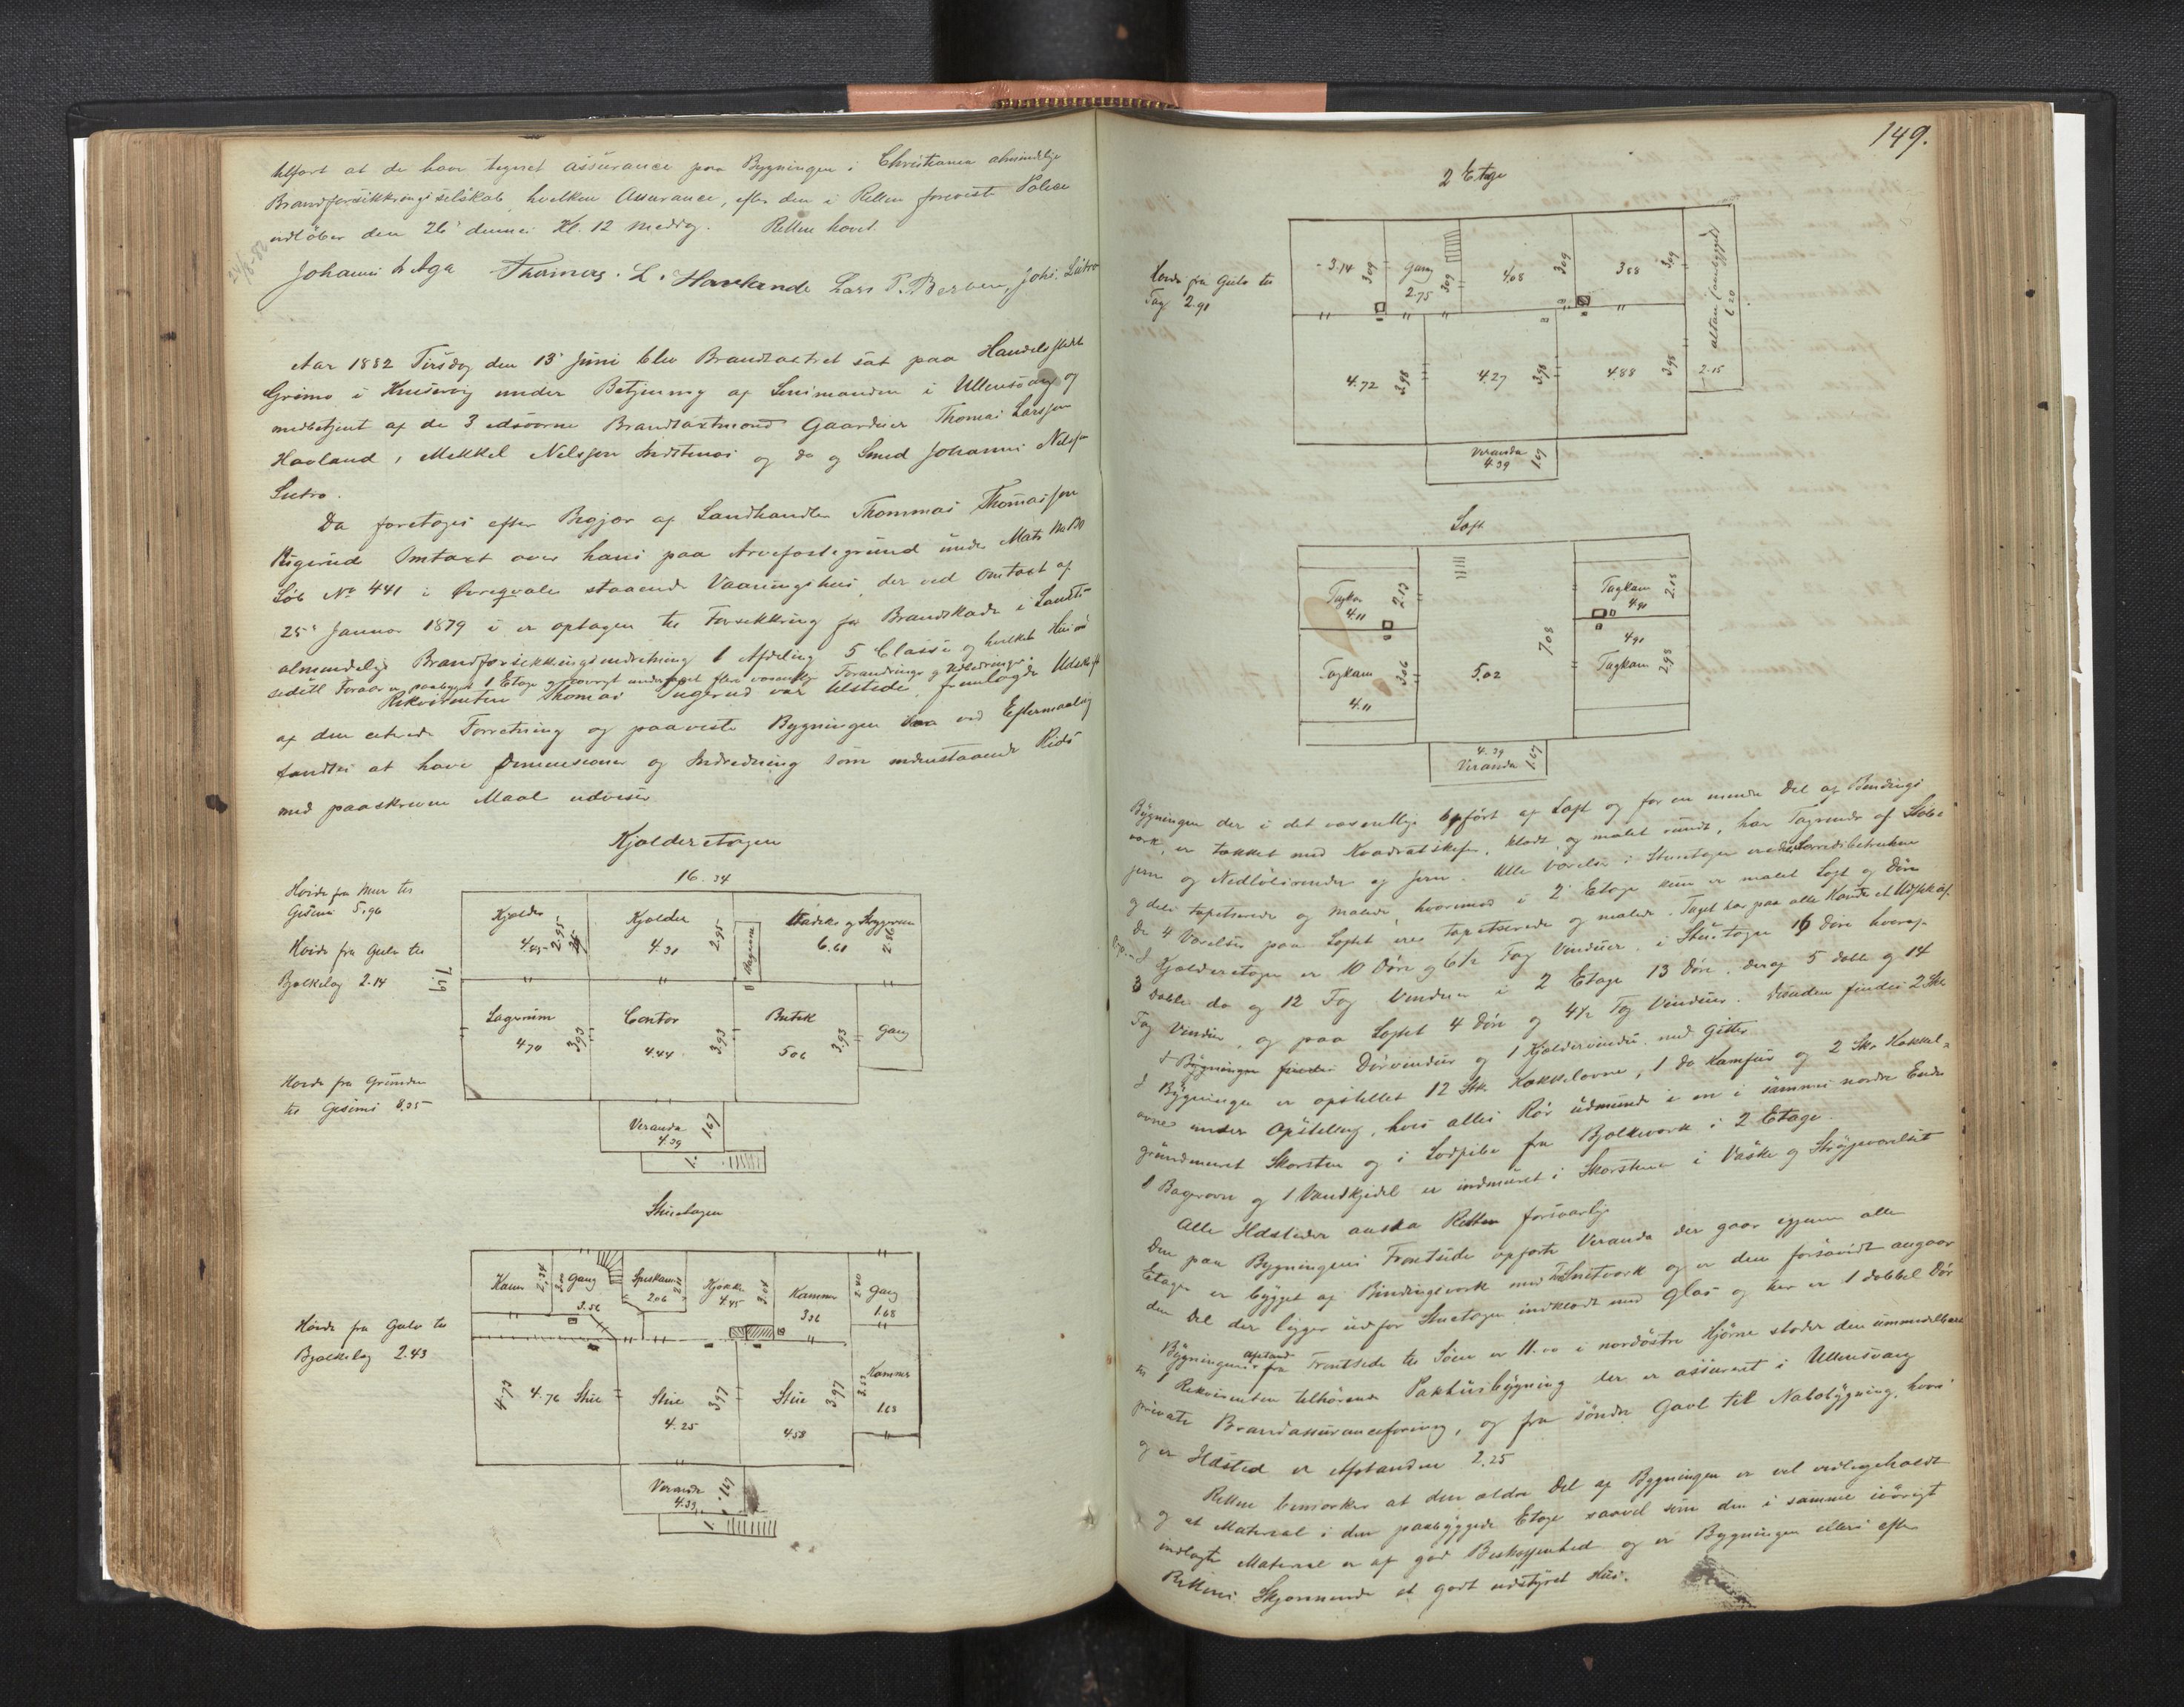 tilført at de have tegnet assurance paa Bygningen i Christiania almindelige
Brandforsikkringsselskab, hvilken Assurance, efter den i Retten foreviste Police
indløber den 26' dennes Kl. 12 Middag. Retten hævet.
24/8-82
Johannes L Aga Thomas. L. Havlande Lars P. Johs. Lutro
Aar 1882 Tirsdag den 13' Juni blev Brandtaxtret sat paa Handelsstedet
Grimo i under Betjening af Lensmanden i Ullensvang og
medbetjent af de 3 edsvorne Brandtaxtmænd Gaardbrer Thomas Larsson
Havland, Mikkel Nelsson og do og Smed Johannes Nelsson
Lutro.
Da foretoges efter Begjær af Landhandler Thommas Thomassen
Omtaxt over hans paa Arvefæstegrund under Matr No
Løb No 441 i staaende Vaaningshus, der ved Omtaxt af
25' Januar 1879 er optagen til Forsikkring for Brandskade i Landets
almindelige Brandforsikkringsindretning 1 Afdeling 5 Classe og hvilket Huus
sidste Foraar er paabygget 1 Etage og iøvrigt undergaaet flere væsentlige Forandringer og Udbedringer.
Rekvirenten Thomas var tilstede, fremlagde Udskrift
af den citerede Forretning og paaviste Bygningen der ved Eftermaaling
fandtes at have Dimensioner og Indredning som nedenstaaende Rids
med paaskrevne Maal udviser
Kjælderetagen
16.34
Høide fra Mur til
Gesims 5,96
Høide fra Gulv til
Bjælkelag 2.14
Høide fra Grunden
til Gesims 8.25
7.19
Kjælder
4.45
2.95
Kjælder
4.31
2.95
Bagerovn
Vadske og Strygerum
6.61
2.86
Lagerrum
4.70
3.93
Contor
4.44
3.93
Butik
5.06
3.93
Gang
Veranda
4.39
1.67
Stueetagen
Høide fra Gulv til
Bjælkelag 2.43
Kam
2.34
Gang
3.56
Spiskam
2.06
2.11
Kjøkken
4.45
3.04
Kammer
3.36
2.40
Gang
1.68
4.73
4.76 Stue
Stue
4.25
3.97
Stue
4.58
3.97
Kammer
1.63
Veranda
4.39
1.67
149.
2 Etage
Høide fra Gulv til
Tag 2.91
3.14
3.09
Gang
2.75
3.09
4.08
3.09
3.88
3.09
altan (ombygget)
6.20
2.15
4.72
3.98
4.27
3.98
4.88
3.98
Veranda
4.39
1.67
Loft
Tagkam
4.11
2.13
Tagkam
4.91
2.18
7.08
5.02
Tagkam
4.11
3.06
4.91
Tagkam
2.93
4.39
Veranda
1.67
Bygningen der i det væsentlige opført af Laft og for en mindre Del af Bindings
værk, er tækket med Kvadratskifer, klædt og malet rundt, har Tagrender af Støbe
jern og Nedløbsrender af Jern. Alle Værelser i Stueetagen ere dels Lærredsbetrukne
og dels tapetserede og malede, hvorimod i 2' Etage kun er malet Loft og Døre
De 4 Værelser paa Loftet ere tapetserede og malede. Taget har paa alle Kanter et Udstik af
I Kjælderetagen er 10 Døre og 6½ Fag Vinduer, i Stueetagen 16 Døre hveraf
3 doble do og 12 Fag Vinduer i 2 Etage 13 Døre, deraf 5 doble og 14
Fag Vinduer, og paa Loftet 4 Døre og 4½ Fag Vinduer. Desuden findes 2 Stk.
Dørvinduer og 1 Kjældervindu med Gitter
I Bygningen er opstillet 12 Stk. Kakkelovne, 1 do Komfur og 2 Stk Kakkel-
ovne under Opstilling, hvis alles Rør udmunde i en i sammes nordre Ende
grundmuret Skorsten og i Lodpibe fra Bjælkeværk i 2 Etage
1 Bagerovn og 1 Vandkjedel er indmuret i Skorstenen i Vaske og Strygeværelset
Alle Ildsteder ansaa Retten forsvarlige
Den paa Bygningens Frontside opførte Veranda der gaar igjennem alle
Etager er bygget af Bindingsværk med Træsnitværk og er den forsaavidt angaar
den Del der ligger udfor Stueetagen indklædt med Glas og her er 1 dobbel Dør
Bygningens Afstand fra Frontside til Søen er 11.00 i nordøstre Hjørne støder den umiddelbart
til 1 Rekvirenten tilhørende Pakhusbygning der er assureret i Ullensvang
private Brandassuranceforening, og fra søndre Gavl til Nabobygning, hvori
og er Ildsted er Afstanden 2.25
Retten bemærker at den ældre Del af Bygningen er vel vedligeholdt
og at Material i den paabyggede Etage saavel som den i samme iøvrigt
indlagte Material er af god Beskaffenhed og er Bygningen ellers efter
Rettens Skjønnende et godt udstyret Hus.